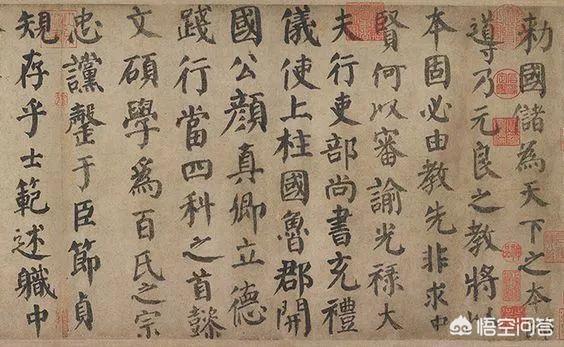 勅國儲為天下之本
導乃元良之教將
本固必由教先非求
賢何以審諭光祿大
夫行吏部尚書充禮
儀使上柱國魯郡開
國公顏真卿立德
踐行當四科之首懿
文碩學爲百氏之宗
忠讜罄于臣節貞
規存乎士範述職中
悟空问答